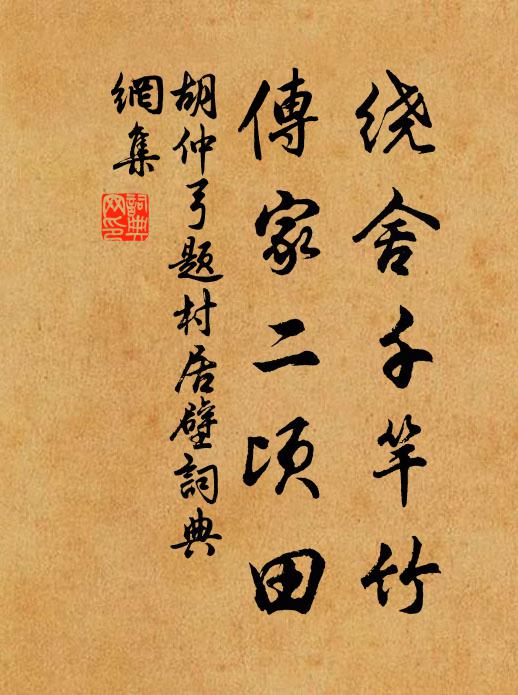 绕舍千竿竹
傳家二顷田
胡仲弓題村居壁詞典
網集
詞典
网印